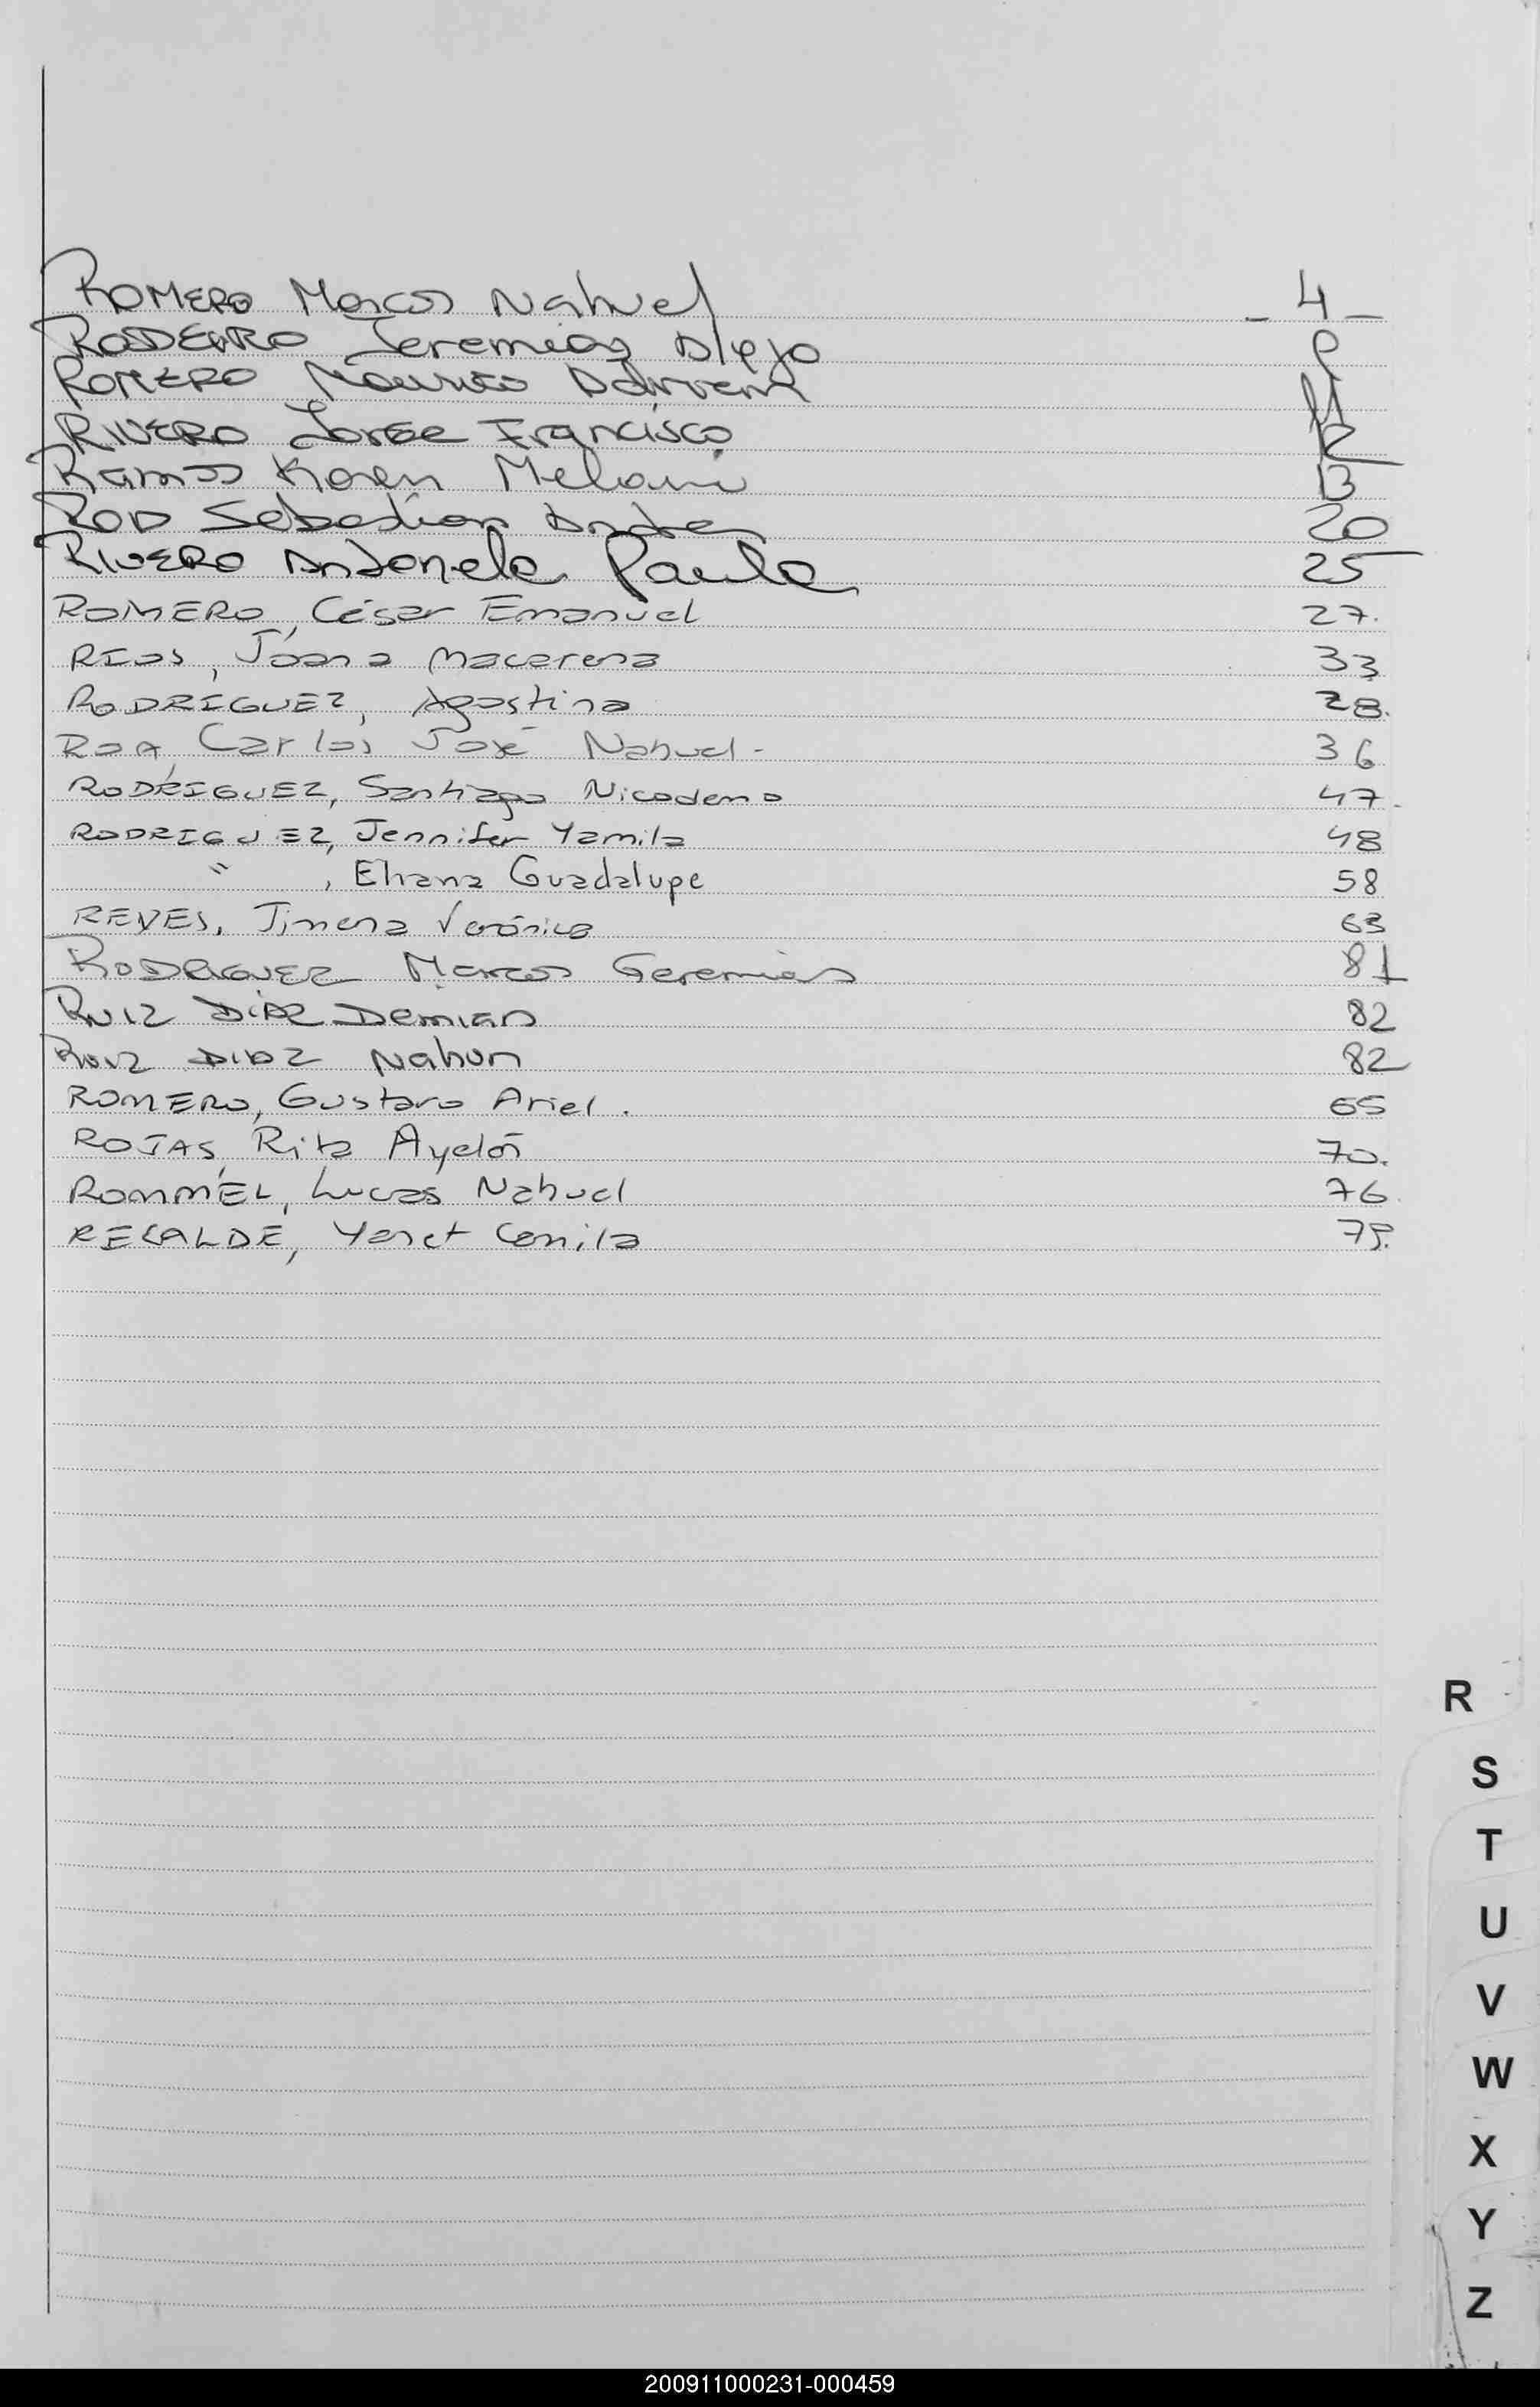 ROMERO Marcos Nahuel - 4 -
Jeremias Alejo
ROMERO
RIVERO Jorge Francisco 12
Ramos Karen Melani 13
ROA Sebastian Andres 20
RIVERO Antonela Paula 25
ROMERO, César Emanuel 27.
RIOS, Joana Macarena 33
RODRIGUEZ, Agostina 28.
ROA, Carlos José Nahuel - 36
RODRIGUEZ, Santiago Nicodemo 47.
RODRIGUEZ, Jennifer Yamila 48
" , Eliana Guadalupe 58
REYES, Jimena Verónica 63
RODRIGUEZ Marcos Geremias 81
RUIZ DIAZ Demian 82
RUIZ DIAZ Nahun 82
ROMERO, Gustavo Ariel. 65
ROJAS, Rita Ayelén 70.
ROMMEL, Lucas Nahuel 76.
RECALDE, Yanet Camila 79.
R
S
T
U
V
W
X
Y
Z
200911000231-000459